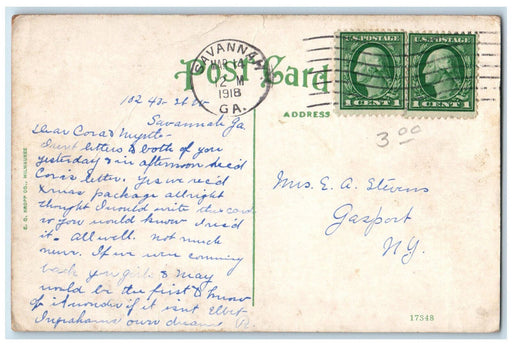 Post Card
SAVANNAH
MAR 14
12 M
1918
GA.
U.S. POSTAGE
1 CENT 1
U.S. POSTAGE
1 CENT 1
ADDRESS
3 00
Savannah Ga.
Dear Cora & Myrtle-
Sent letters to both of you
yesterday & in afternoon rec'd
Cora's letter. yes we rec'd
Xmas package allright
thought I would write this card
so you would know I rec'd
it. All well. not much
news. If we were coming
back you girls & May
would be the first to know
of it wonder if it isnt Elbet
Ingrahams own dream
Mrs. E. A. Stevens
Gasport
N.Y.
E. C. KROPP CO., MILWAUKEE
17348